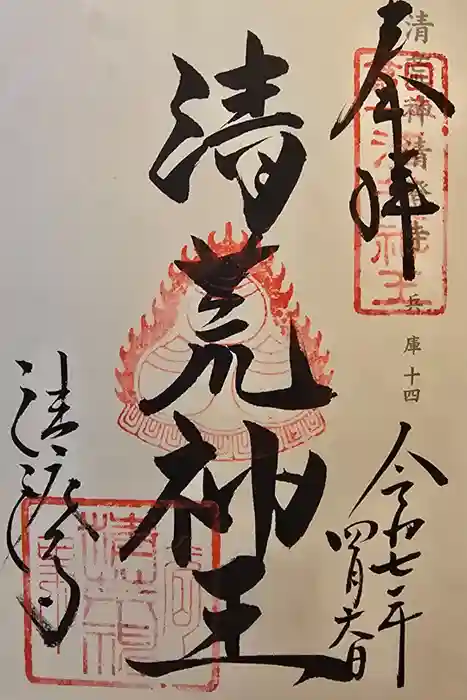 奉拝
清荒神清澄寺 兵庫十四
令和七年
四月六日
清荒神王
清澄寺